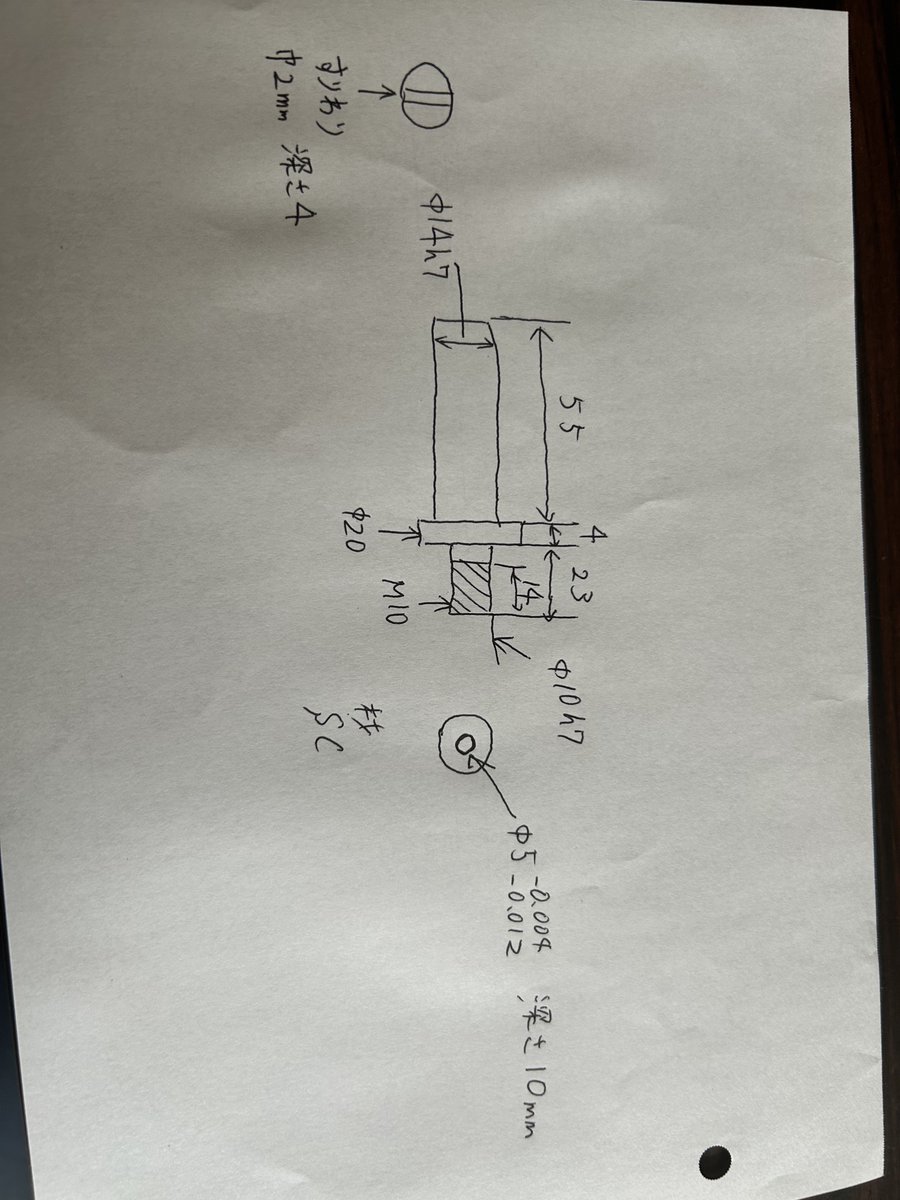 すりわり
巾2mm 深さ4
φ14h7
55
4
23
14
φ20
M10
φ10h7
材
SC
φ5 -0.004
-0.012
深さ10mm